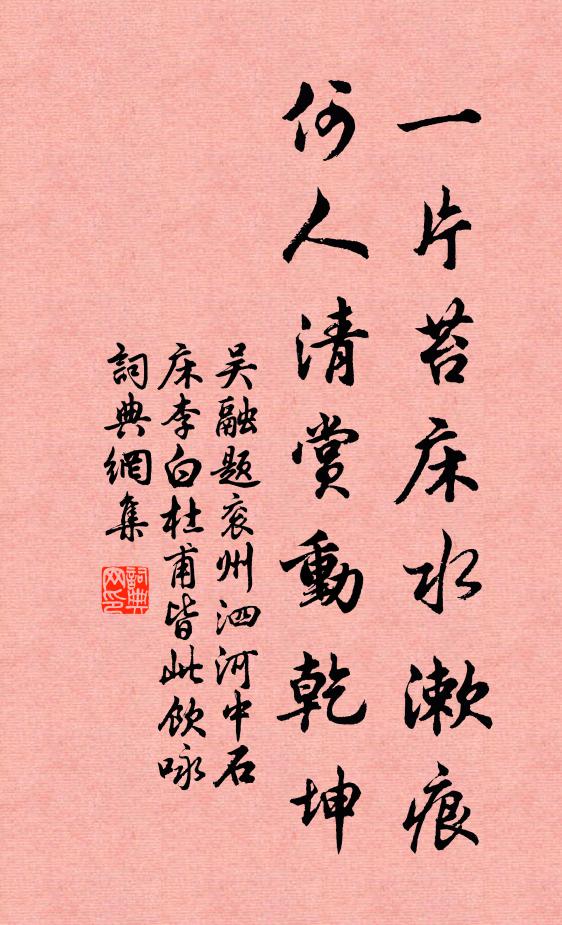 一片苔床水漱痕
何人清赏動乾坤
吴融题衮州泗河中石
床李白杜甫皆此飲咏
詞典網集
詞典网印